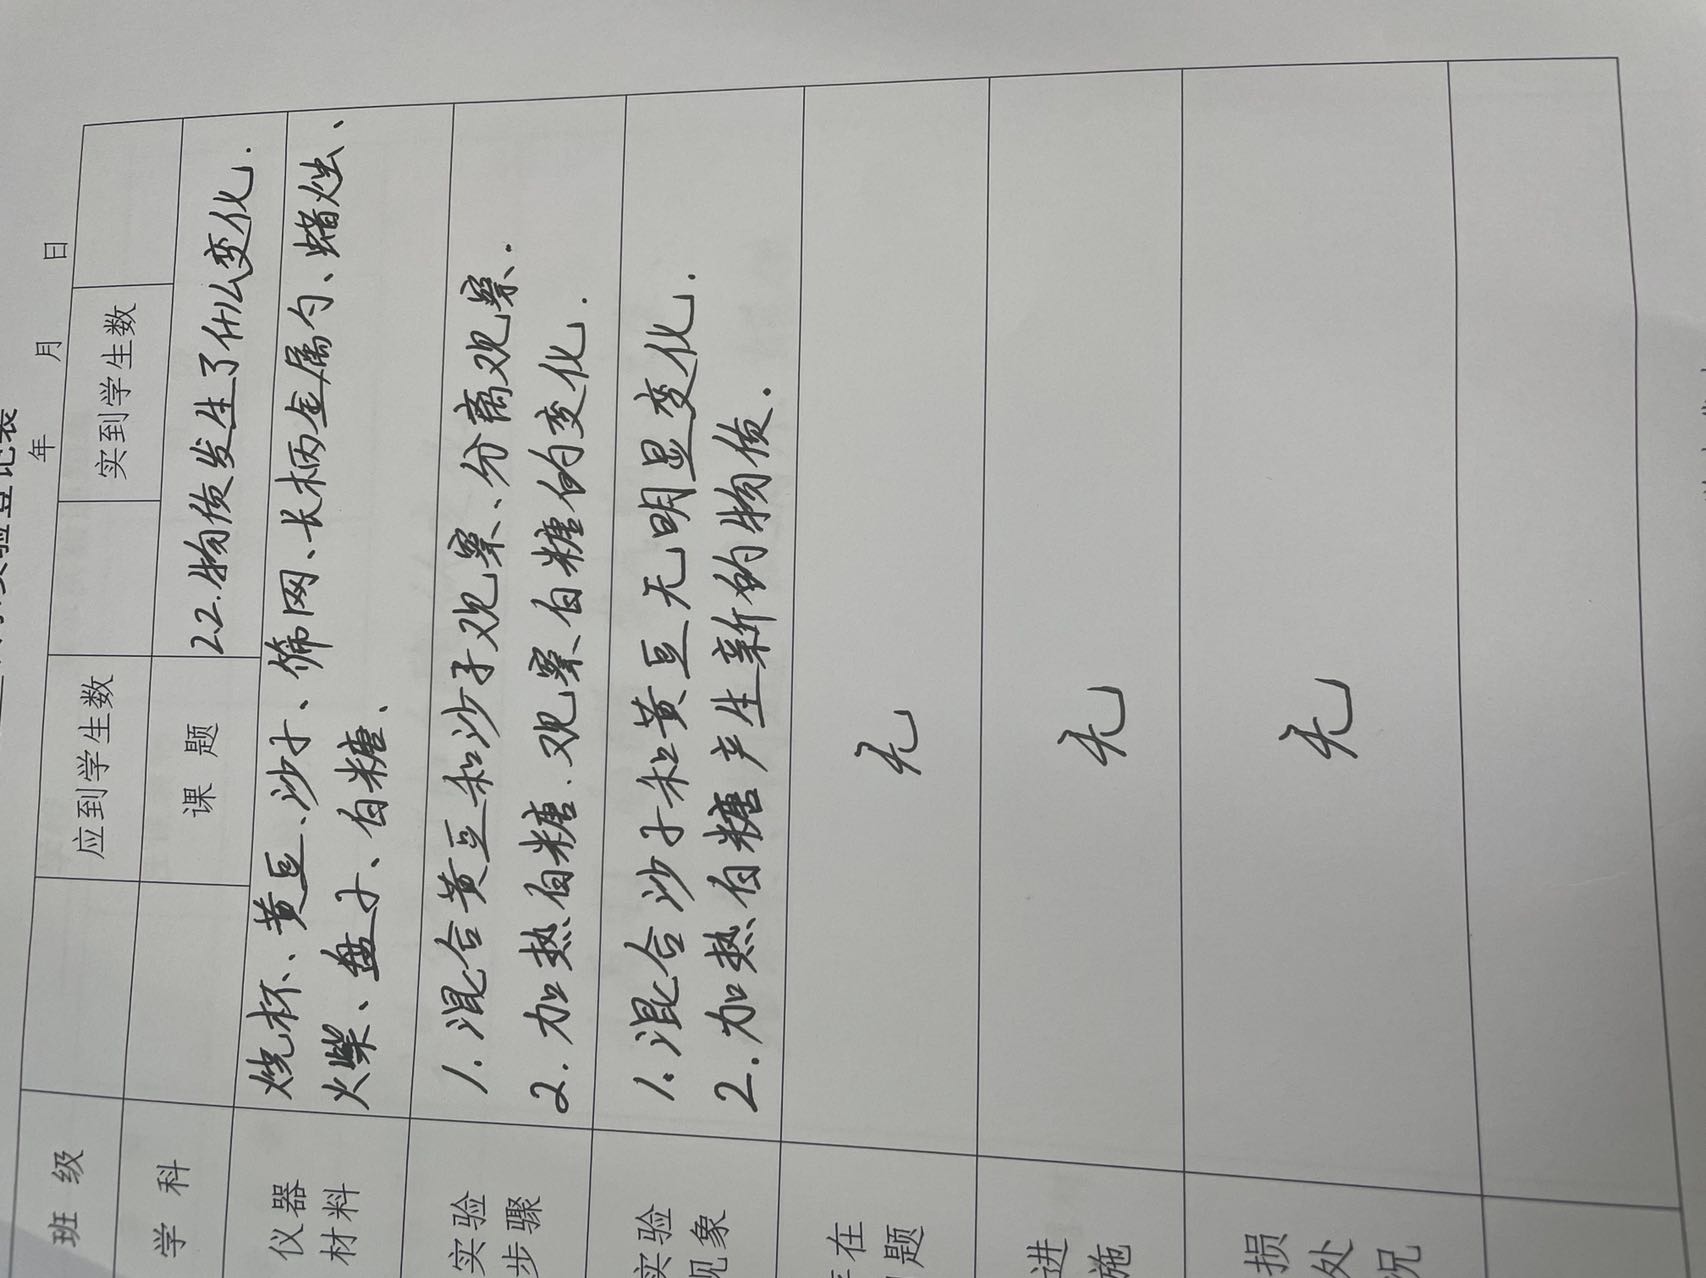 年 月 日
班 级 应到学生数 实到学生数
学 科 课 题 22.物质发生了什么变化.
仪器
材料
烧杯、黄豆、沙子、筛网、长柄金属勺、蜡烛、
火柴、盘子、白糖、
实验
步骤
1.混合黄豆和沙子观察、分离观察.
2.加热白糖.观察白糖的变化.
实验
现象
1.混合沙子和黄豆无明显变化.
2.加热白糖产生新的物质.
在
题
无
进
施
无
损
处
况
无